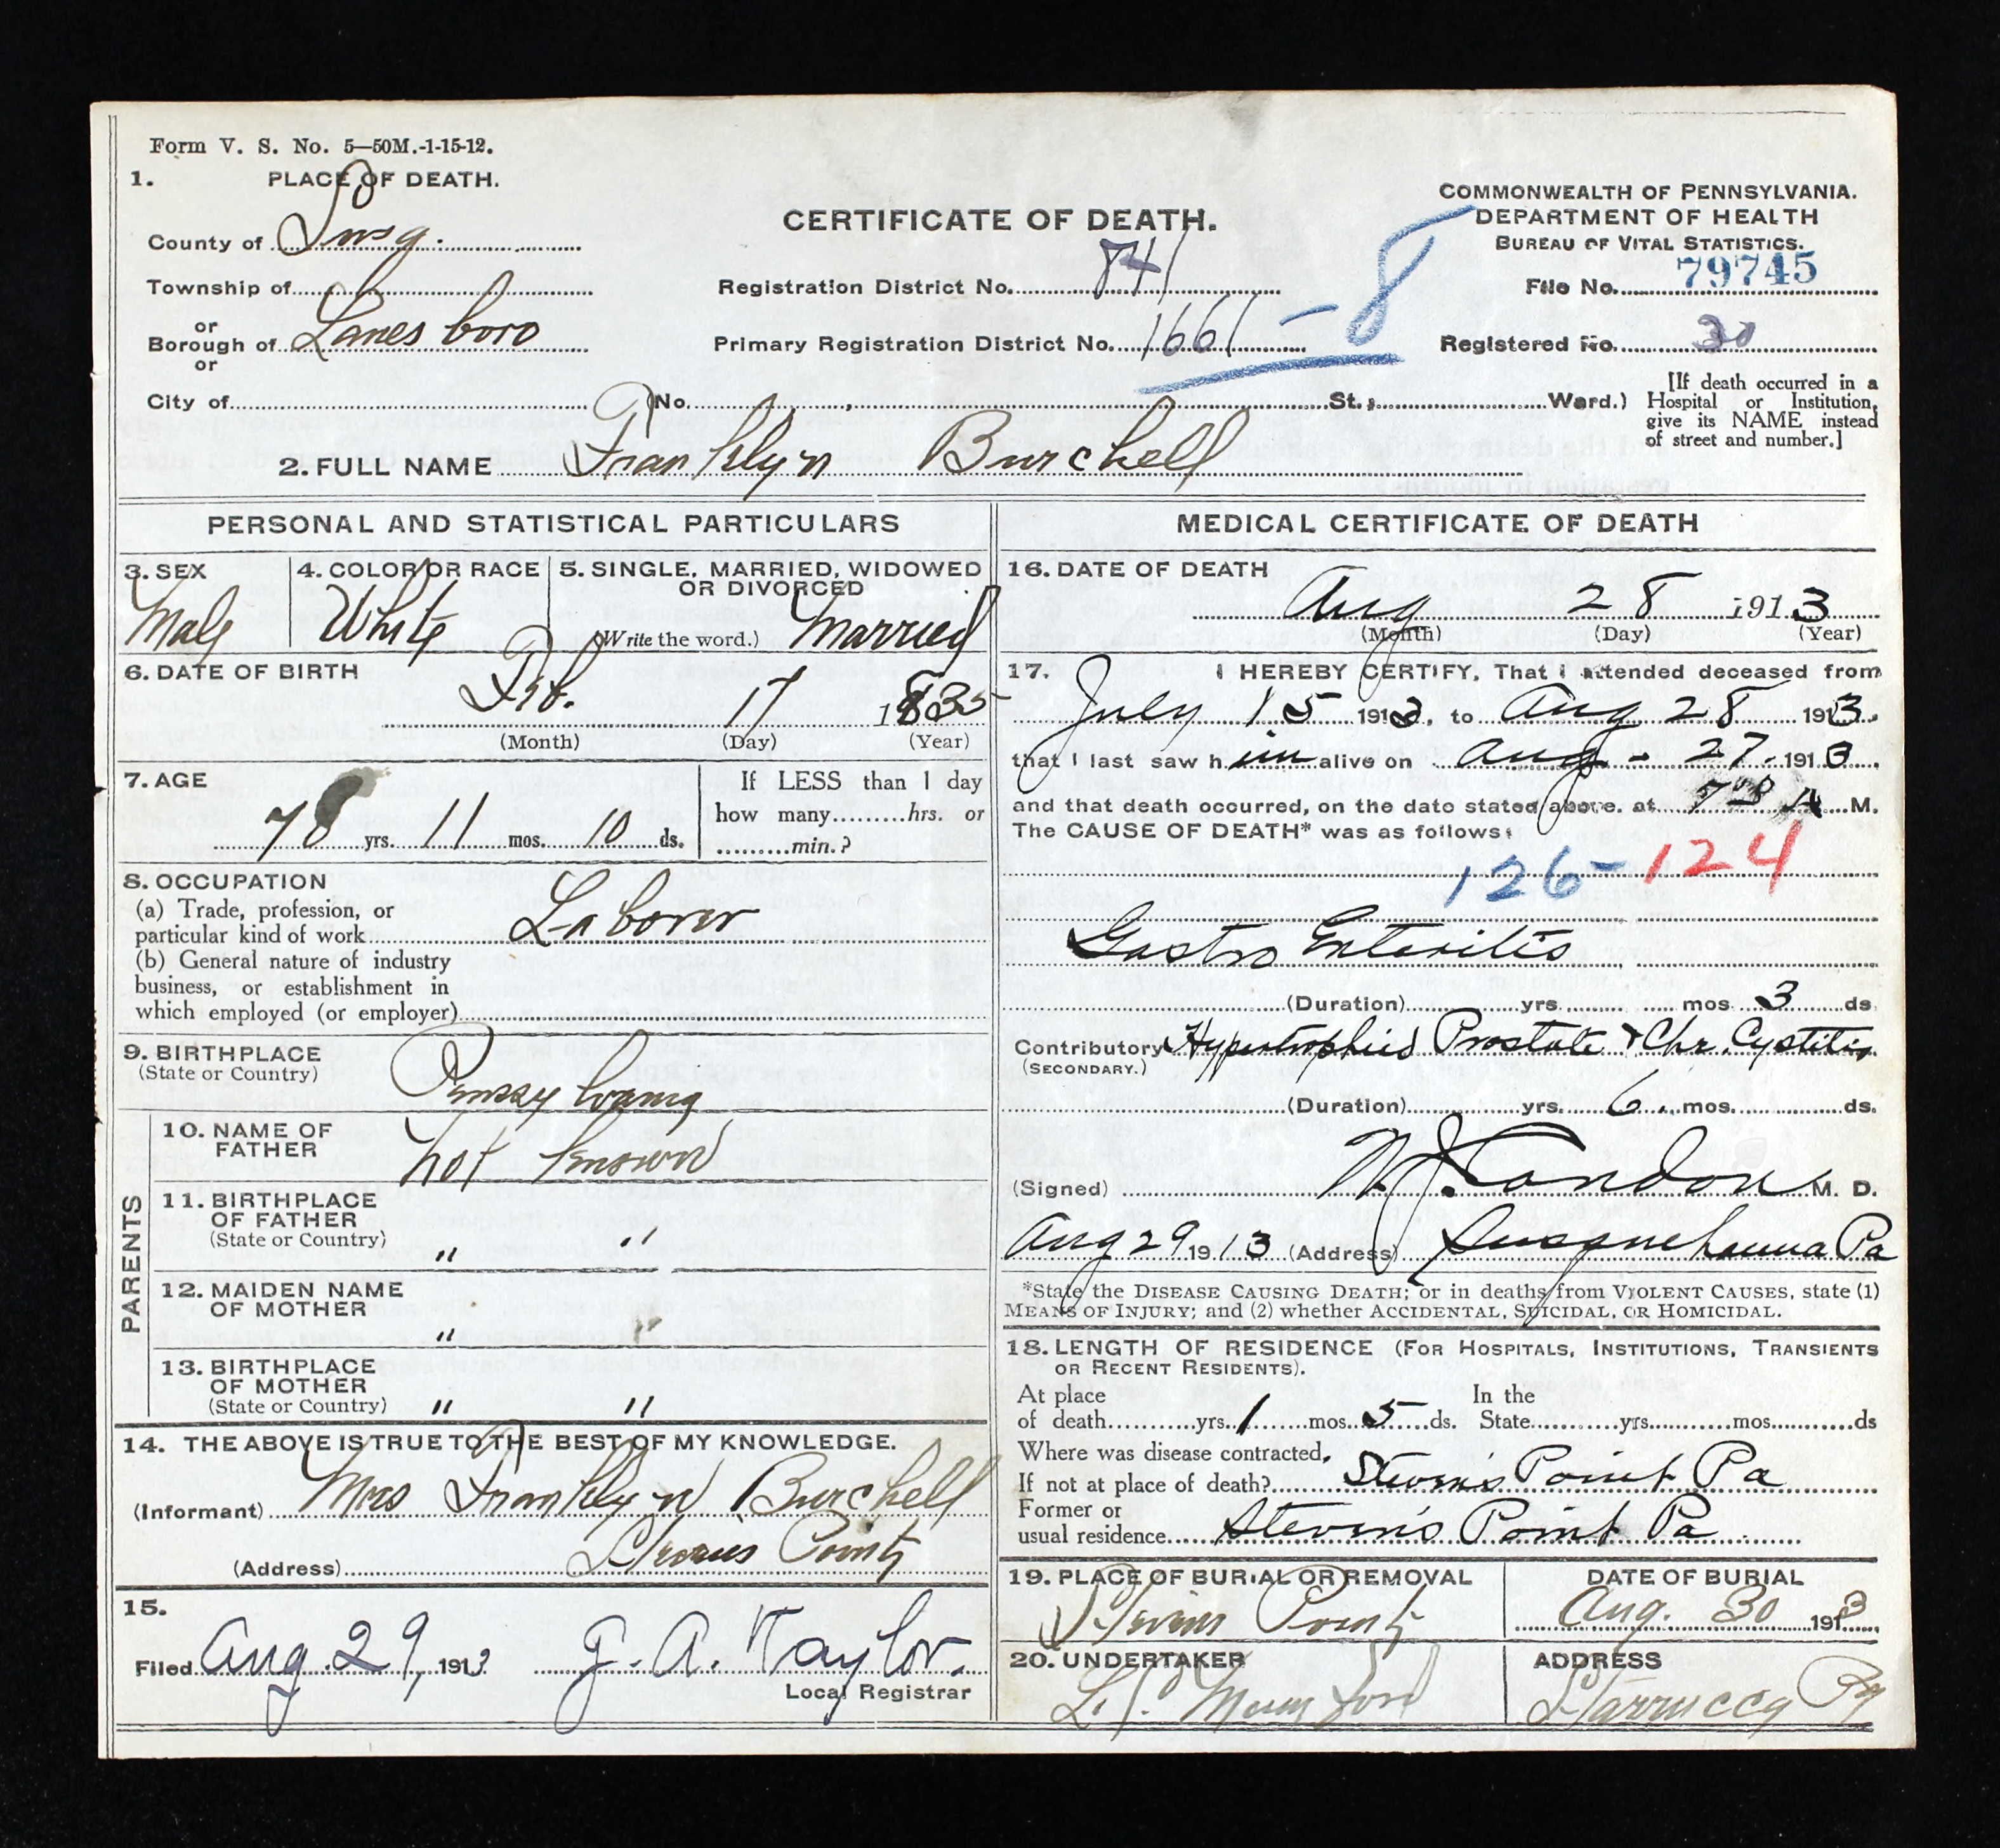 Form V. S. No. 5—50M.-1-15-12.
1. PLACE OF DEATH.
County of Susq.
Township of
or
Borough of Lanesboro
or
City of (No. , St., Ward.)
CERTIFICATE OF DEATH.
Registration District No. 841
Primary Registration District No. 1661 - 8
COMMONWEALTH OF PENNSYLVANIA.
DEPARTMENT OF HEALTH
BUREAU OF VITAL STATISTICS.
File No. 79745
Registered No. 30
[If death occurred in a
Hospital or Institution,
give its NAME instead
of street and number.]
2. FULL NAME Franklyn Burchell
PERSONAL AND STATISTICAL PARTICULARS
3. SEX
Male
4. COLOR OR RACE
White
5. SINGLE, MARRIED, WIDOWED
OR DIVORCED
(Write the word.) Married
6. DATE OF BIRTH
Feb. 17 1835
(Month) (Day) (Year)
7. AGE
78 yrs. 11 mos. 10 ds.
If LESS than 1 day
how many hrs. or
min.?
8. OCCUPATION
(a) Trade, profession, or
particular kind of work Laborer
(b) General nature of industry
business, or establishment in
which employed (or employer)
9. BIRTHPLACE
(State or Country)
PARENTS
10. NAME OF
FATHER
not known
11. BIRTHPLACE
OF FATHER
(State or Country) " "
12. MAIDEN NAME
OF MOTHER
" "
13. BIRTHPLACE
OF MOTHER
(State or Country) " "
14. THE ABOVE IS TRUE TO THE BEST OF MY KNOWLEDGE.
(Informant) Mrs Franklyn Burchell
(Address) Stevens Point
15.
Filed Aug. 29, 1913 J. A. Taylor.
Local Registrar
MEDICAL CERTIFICATE OF DEATH
16. DATE OF DEATH
Aug 28 1913
(Month) (Day) (Year)
17. I HEREBY CERTIFY, That I attended deceased from
July 15 1913, to Aug 28 1913.
that I last saw him alive on Aug - 27. 1913.
and that death occurred, on the date stated above, at A M.
The CAUSE OF DEATH* was as follows:
126-124
Gastro Enteritis
(Duration) yrs. mos 3 ds.
Contributory Hypertrophied Prostate & Chr. Cystitis
(SECONDARY.)
(Duration) yrs. 6. mos. ds.
(Signed) Condon M. D.
Aug 29 1913 (Address) Susquehanna Pa
*State the DISEASE CAUSING DEATH; or in deaths from VIOLENT CAUSES, state (1)
MEANS OF INJURY; and (2) whether ACCIDENTAL, SUICIDAL, OR HOMICIDAL.
18. LENGTH OF RESIDENCE (FOR HOSPITALS, INSTITUTIONS, TRANSIENTS
OR RECENT RESIDENTS).
At place
of death yrs. 1 mos. 5 ds.
In the
State yrs. mos. ds
Where was disease contracted,
If not at place of death? Steven's Point Pa
Former or
usual residence Steven's Point Pa
19. PLACE OF BURIAL OR REMOVAL
Stevens Point
DATE OF BURIAL
Aug. 30 1913
20. UNDERTAKER
ADDRESS
Starrucca Pa